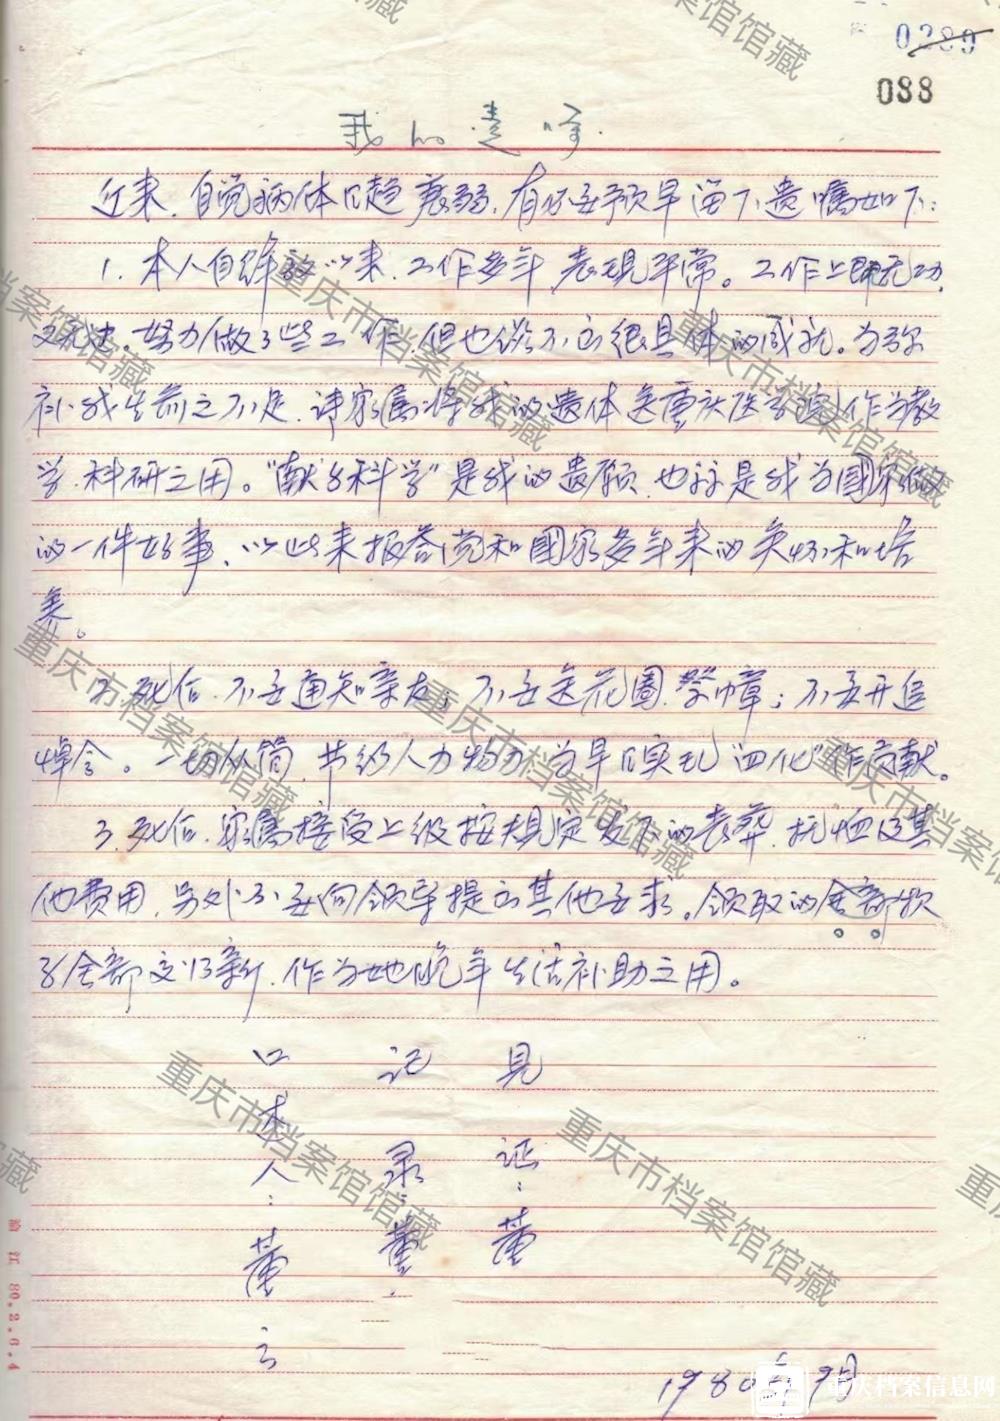 0289
088
我的遗嘱
近来,自觉病体日趋衰弱,有必要预早留下遗嘱如下:
1. 本人自解放以来,工作多年,表现平常。工作上既无功,
又无过。努力做了些工作,但也谈不上很具体的成就。为弥
补我生前之不足,请家属将我的遗体送重庆医学院作为教
学、科研之用。“献给科学”是我的遗愿,也算是我为国家做
的一件好事,以此来报答党和国家多年来的关怀和培
养。
2. 死后,不要通知亲友,不要送花圈、祭幛;不要开追
悼会。一切从简,节约人力物力,为早日实现“四化”作贡献。
3. 死后,家属接受上级按规定发下的丧葬、抚恤及其
他费用,另外不要向领导提出其他要求。领取的全部款
子全部交 新,作为她晚年生活补助之用。
口本人:董
记录:董
见证:董
1980年9月
渝江 80.2.6.4
重庆市档案馆馆藏
重庆档案信息网